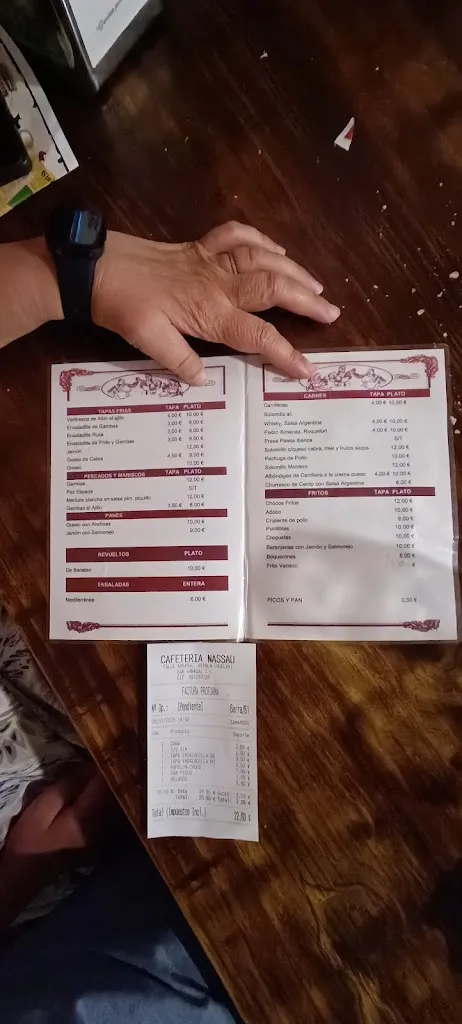 TAPAS FRIAS TAPA PLATO
Ventresca de Atún al ajillo 4,00 € 10,00 €
Ensaladilla de Gambas 3,00 € 8,00 €
Ensaladilla Rusa 3,00 € 8,00 €
Ensaladilla de Pollo y Gambas 3,00 € 8,00 €
Jamón 12,00 €
Queso de Cabra 4,50 € 9,00 €
Queso 10,00 €
PESCADOS Y MARISCOS TAPA PLATO
Gambas 12,00 €
Pez Espada S/T
Merluza plancha en salsa pim. piquillo 12,00 €
Gambas al Ajillo 3,50 € 8,00 €
PANES
Queso con Anchoas 10,00 €
Jamón con Salmorejo 9,00 €
REVUELTOS PLATO
De Bacalao 10,00 €
ENSALADAS ENTERA
Mediterránea 6,00 €
CARNES TAPA PLATO
Carrilleras 4,00 € 10,00 €
Solomillo al:
Whisky, Salsa Argentina 4,00 € 10,00 €
Pedro Ximenez, Roquefort 4,00 € 10,00 €
Presa Paleta Ibérica S/T
Solomillo c/queso cabra, miel y frutos secos 12,00 €
Pechuga de Pollo 10,00 €
Solomillo Montero 12,00 €
Albóndigas de Carrillera a la crema queso 4,00 € 10,00 €
Churrasco de Cerdo con Salsa Argentina 8,00 €
FRITOS TAPA PLATO
Chocos Fritos 12,00 €
Adobo 10,00 €
Crujiente de pollo 8,00 €
Puntillitas 10,00 €
Croquetas 10,00 €
Berenjenas con Jamón y Salmorejo 10,00 €
Boquerones
Frito Variado
PICOS Y PAN 0,50 €
CAFETERIA NASSAU
FACTURA PROFORMA
Nº Op.: [Pendiente] Barra/51
Producto Importe
TAPA ENSALADILLA GA
TAPA ENSALADILLA PO
Total (Impuestos Incl.) 22,80 €